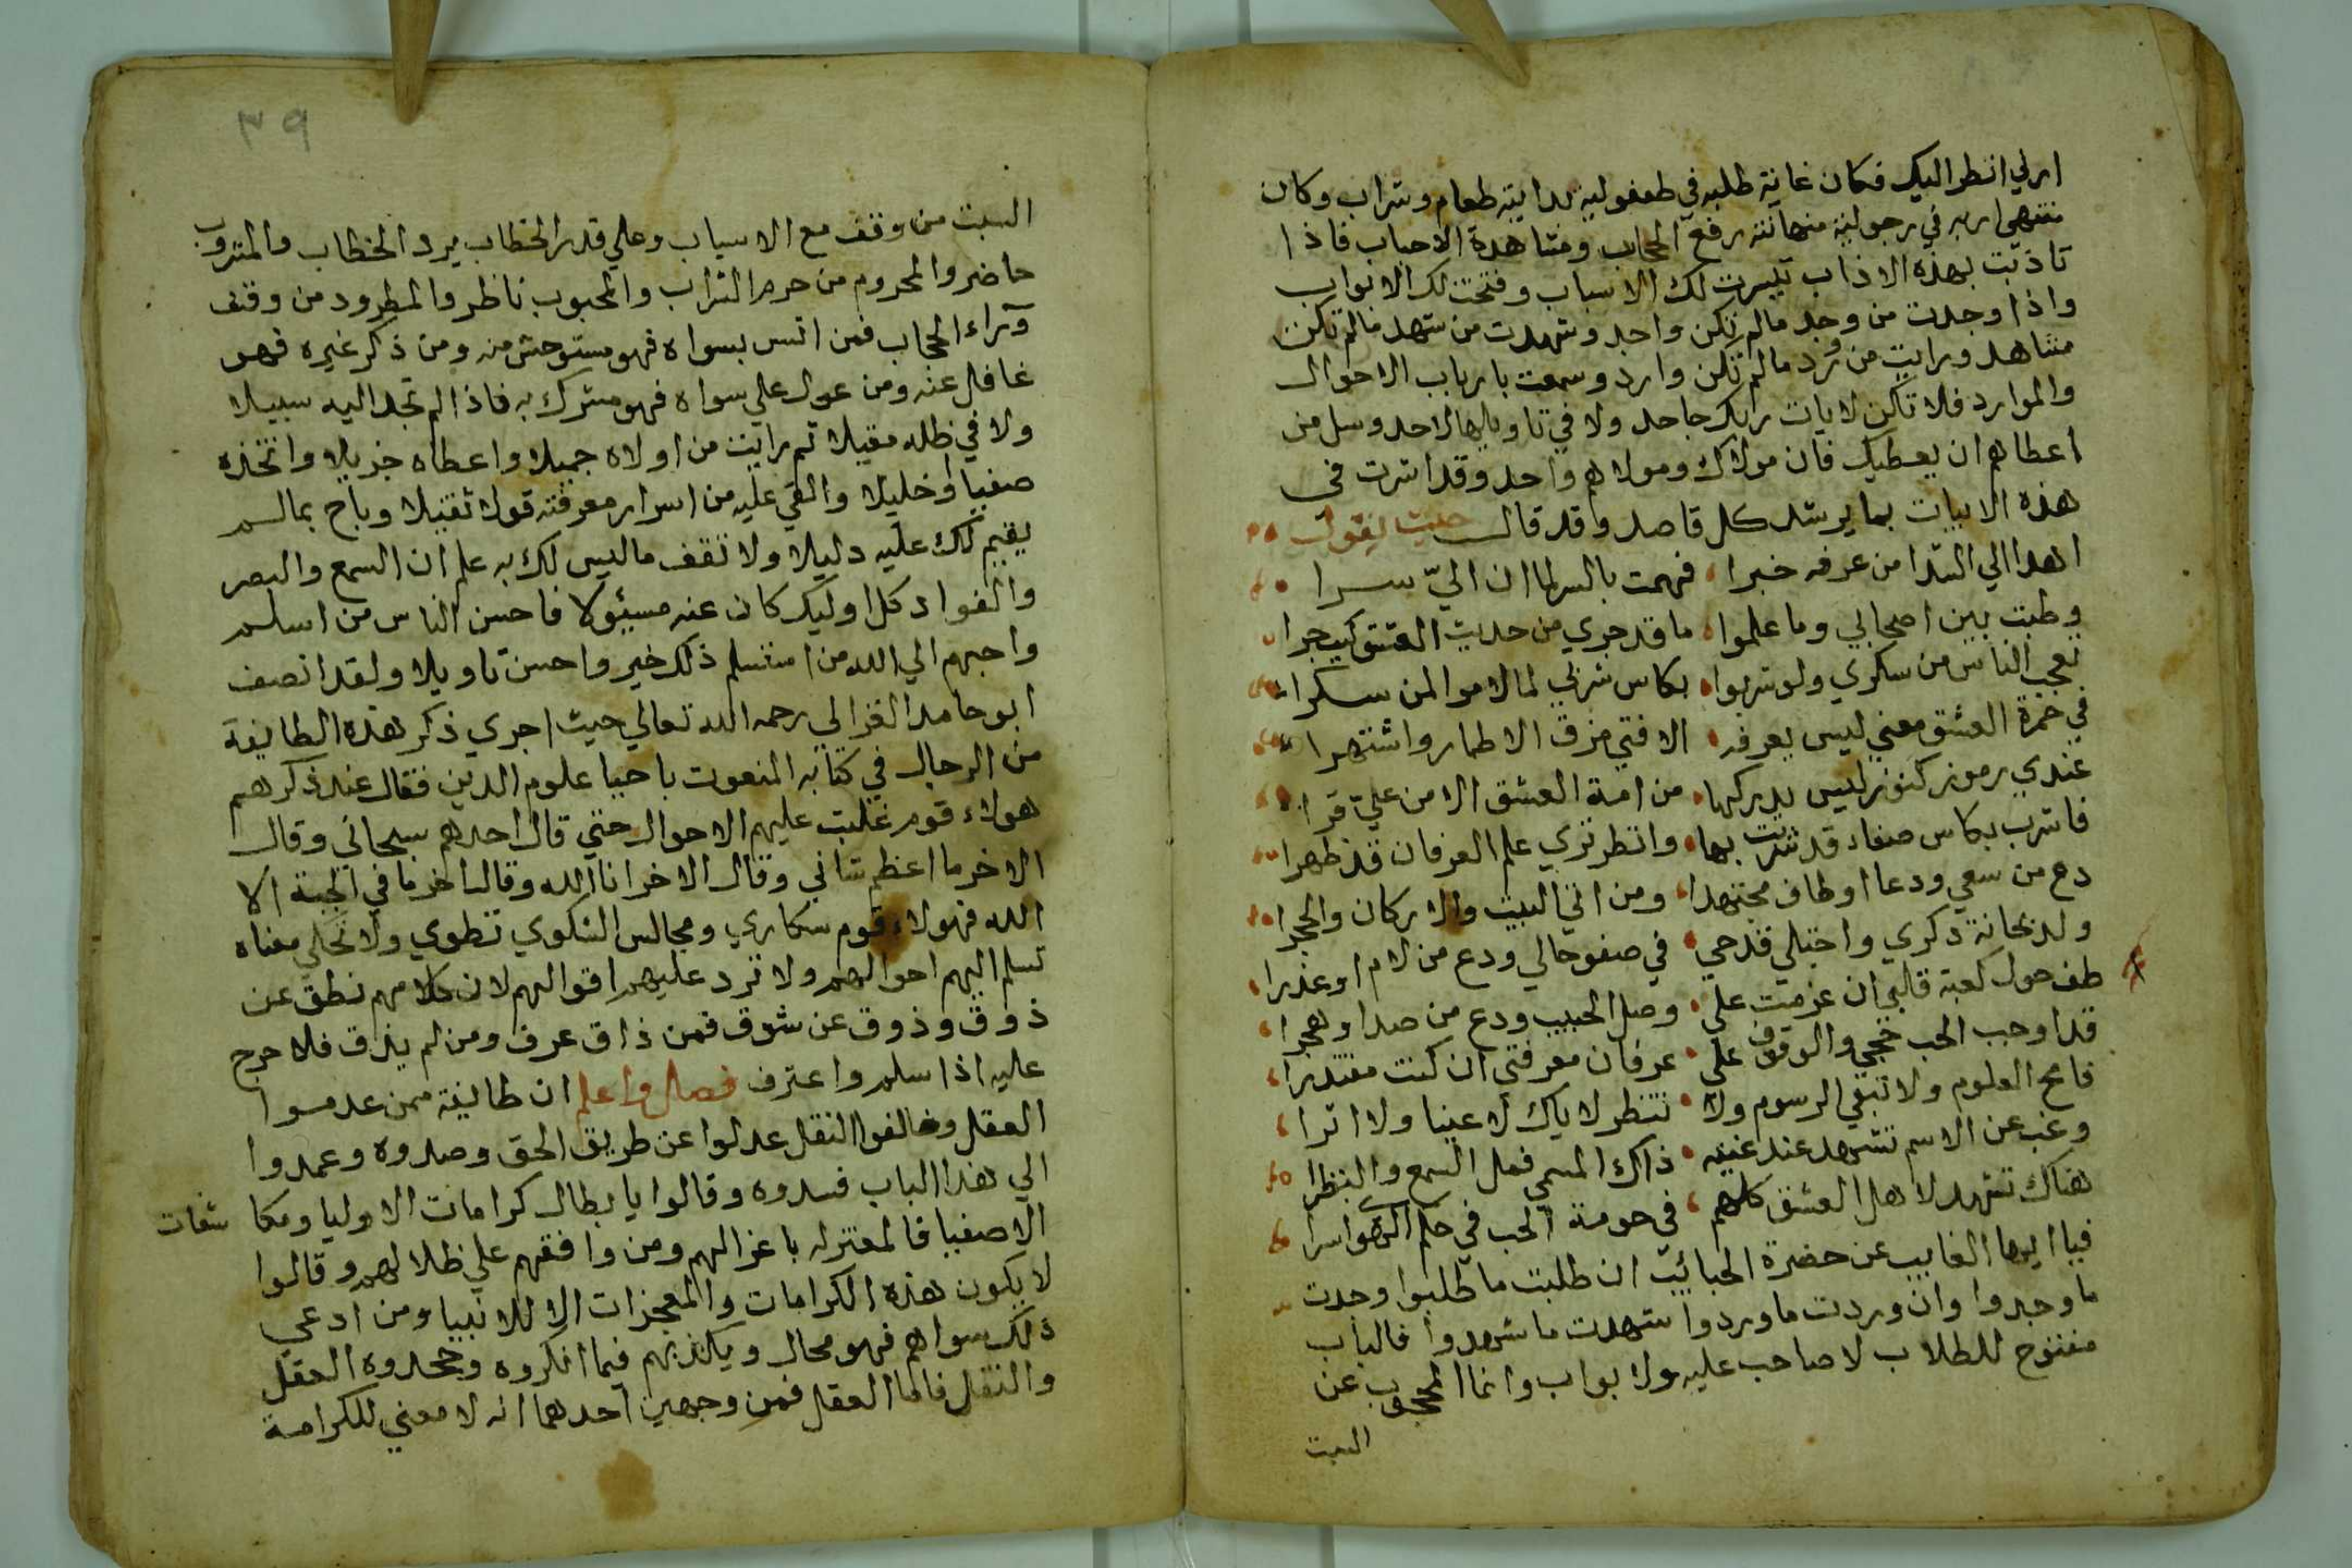 ارني انظر اليك فكان غاية طلبه في طفوليته بداية طعام وشراب وكان
منتهى اربه في رجوليته منهايته رفع الحجاب ومشاهدة الاحباب فاذا
تاذبت بهذه الاذاب تيسرت لك الاسباب وفتحت لك الابواب
واذا وجدت من وجد مالم تكن واجد وشهدت من شهد مالم تكن
مشاهد ورايت من ورد مالم تكن وارد وسمعت بارباب الاحوال
والموارد فلا تكن لايات ربك جاحد ولا في تاويلها لاحد وسل من
اعطاهم ان يعطيك فان مولاك ومولاهم واحد وقد اشرت في
هذه الابيات بما يرشد كل قاصد وقد قال حيث يقول
اهدا الي الشذا من عرفه خبرا فهمت بالسر لما ان اليّ سرا
وطبت بين اصحابي وما علموا ما قد جري من حديث العشق كيف جرا
تعجب الناس من سكري ولو شربوا بكاس شربي لما لاموا لمن سكرا
في خمرة العشق معني ليس يعرفه الا فتي مزق الاطمار واشتهرا
عندي رموز كنوز ليس يدركها من امة العشق الا من عليّ قرا
فاشرب بكاس صفاء قد شربت بها وانظر تري علم العرفان قد ظهرا
دع من سعي ودعا او طاف مجتهدا ومن اتي البيت والاركان والحجرا
ولذ بحانة ذكري واجتلي قدحي في صفو حالي ودع من لام او عذرا
طف حول كعبة قلبي ان عزمت علي وصل الحبيب ودع من صد او هجرا
قد اوجب الحب حجي والوقوف علي عرفان معرفتي ان كنت مقتدرا
فامح العلوم ولا تبقي الرسوم ولا تنظر لاياك لا عينا ولا اثرا
وغب عن الاسم تشهد عند غيبته ذاك المسمي فمل السمع والنظرا
هناك تشهد لاهل العشق كلهم في حومة الحب في حكم الهوي اسرا
فيا ايها الغايب عن حضرة الحبائب ان طلبت ما طلبوا وجدت
ما وجدوا وان وردت ما وردوا شهدت ما شهدوا فالباب
مفتوح للطلاب لا صاحب عليه ولا بواب وانما المحجوب عن
البيت
٣٩
البيت من وقف مع الاسباب وعلي قدر الخطاب يرد الخطاب فالمتروب
حاضر والمحروم من حرم الشراب والمحبوب ناظر والمطرود من وقف
وراء الحجاب فمن انس بسواه فهو مستوحش منه ومن ذكر غيره فهو
غافل عنه ومن عول علي سواه فهو مشرك به فاذا لم تجد اليه سبيلا
ولا في ظله مقيلا ثم رايت من اولاه جميلا واعطاه جزيلا واتخذه
صفيا وخليلا والقي عليه من اسرار معرفته قولا ثقيلا وباح بما لم
يقيم لك عليه دليلا ولا تقف ماليس لك به علم ان السمع والبصر
والفواد كل اوليك كان عنه مسئولا فاحسن الناس من اسلم
واحبهم الي الله من استسلم ذلك خير واحسن تاويلا ولقد انصف
ابو حامد الغزالي رحمه الله تعالي حيث اجري ذكر هذه الطايفة
من الرجال في كتابه المنعوت باحيا علوم الدين فقال عند ذكرهم
هولاء قوم غلبت عليهم الاحوال حتي قال احدهم سبحاني وقال
الاخر ما اعظم شاني وقال الاخر انا الله وقال اخر ما في الجبة الا
الله فهولاء قوم سكاري ومجالس الشكوي تطوي ولا تحكي معناه
تسلم اليهم احوالهم ولا ترد عليهم اقوالهم لان كلامهم نطق عن
ذوق وذوق عن شوق فمن ذاق عرف ومن لم يذق فلا حرج
عليه اذا سلم واعترف فصل واعلم ان طايفة ممن عدموا
العقل وخالفوا النقل عدلوا عن طريق الحق وصدوه وعمدوا
الي هذا الباب فسدوه وقالوا يا بطال كرامات الاوليا ومكاشفات
الاصفيا فالمعتزله باعزالهم ومن وافقهم علي ظلالهم وقالوا
لا يكون هذه الكرامات والمعجزات الا للانبيا ومن ادعي
ذلك سواهم فهو محال ويكذبهم فيما انكروه وجحدوه العقل
والنقل فاما العقل فمن وجهين احدهما انه لا معني للكرامة